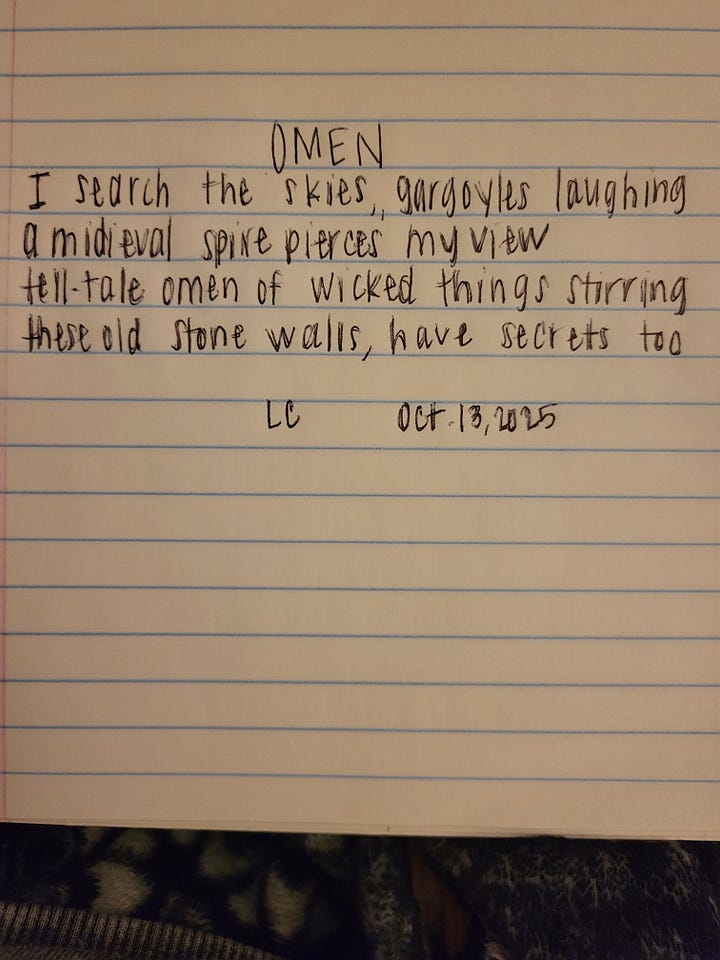 OMEN
I search the skies,, gargoyles laughing
a midieval spire pierces my view
tell-tale omen of wicked things stirring
these old stone walls, have secrets too
LC Oct. 13, 2025